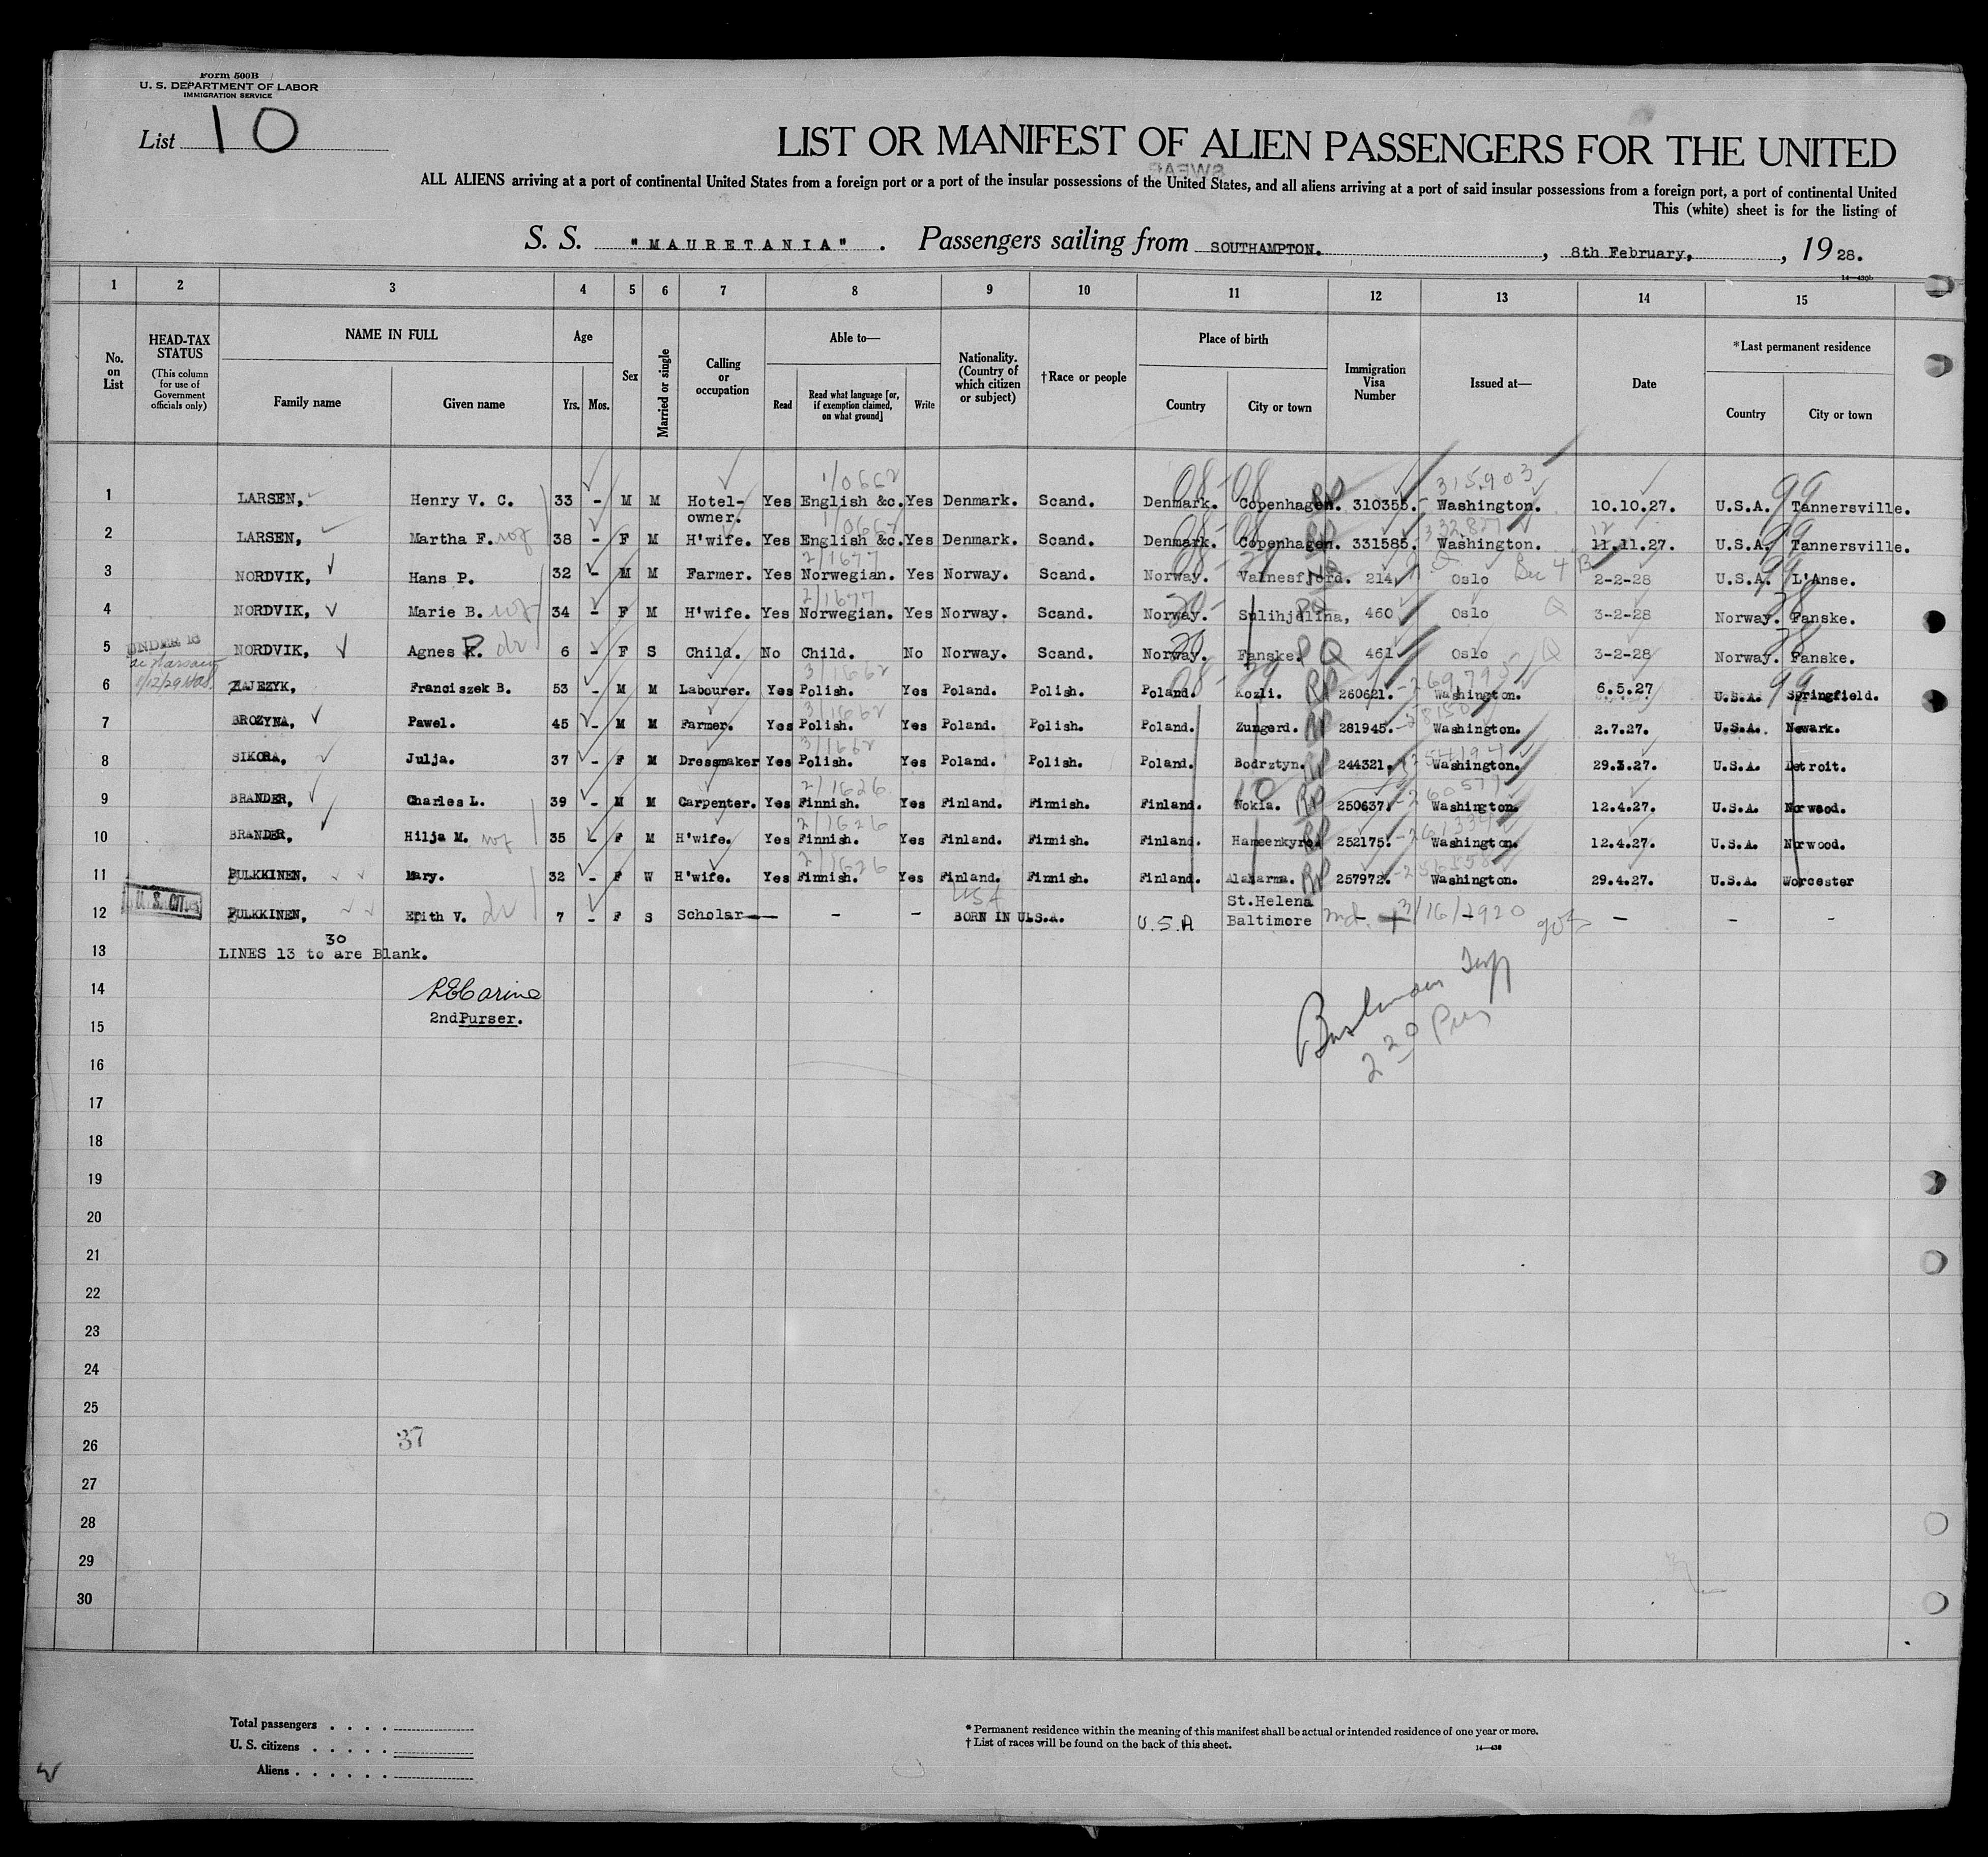 Form 500B
U. S. DEPARTMENT OF LABOR
IMMIGRATION SERVICE
List 10
LIST OR MANIFEST OF ALIEN PASSENGERS FOR THE UNITED
ALL ALIENS arriving at a port of continental United States from a foreign port or a port of the insular possessions of the United States, and all aliens arriving at a port of said insular possessions from a foreign port, a port of continental United
This (white) sheet is for the listing of
S. S. "MAURETANIA" . Passengers sailing from SOUTHAMPTON. , 8th February, , 19 28.
1 2 3 4 5 6 7 8 9 10 11 12 13 14 15
No. on List
HEAD-TAX STATUS
(This column for use of Government officials only)
NAME IN FULL
Family name
Given name
Age
Yrs. Mos.
Sex
Married or single
Calling or occupation
Able to—
Read
Read what language [or, if exemption claimed, on what ground]
Write
Nationality. (Country of which citizen or subject)
†Race or people
Place of birth
Country
City or town
Immigration Visa Number
Issued at—
Date
*Last permanent residence
Country
City or town
1 LARSEN, Henry V. C. 33 - M M Hotel-owner. Yes English &c. Yes Denmark. Scand. Denmark. Copenhagen. 310355. Washington. 10.10.27. U.S.A. Tannersville.
2 LARSEN, Martha F. wf 38 - F M H'wife. Yes English &c. Yes Denmark. Scand. Denmark. Copenhagen. 331585. Washington. 11.11.27. U.S.A. Tannersville.
3 NORDVIK, Hans P. 32 - M M Farmer. Yes Norwegian. Yes Norway. Scand. Norway. Valnesfjord. 214 Oslo Sec 4 B 2-2-28 U.S.A. L'Anse.
4 NORDVIK, Marie B. wf 34 - F M H'wife. Yes Norwegian. Yes Norway. Scand. Norway. Sulihjelina, 460 Oslo 3-2-28 Norway. Fanske.
5 UNDER 16 NORDVIK, Agnes P. dr 6 - F S Child. No Child. No Norway. Scand. Norway. Fanske. PQ 461 Oslo 3-2-28 Norway. Fanske.
6 ZAJEZYK, Franciszek B. 53 - M M Labourer. Yes Polish. Yes Poland. Polish. Poland. Kozli. 260621. Washington. 6.5.27 U.S.A. Springfield.
7 BROZYNA, Pawel. 45 - M M Farmer. Yes Polish. Yes Poland. Polish. Poland. Zungerd. 281945. Washington. 2.7.27. U.S.A. Newark.
8 SIKORA, Julja. 37 - F M Dressmaker Yes Polish. Yes Poland. Polish. Poland. Bodrztyn. 244321. Washington. 29.3.27. U.S.A. Detroit.
9 BRANDER, Charles L. 39 - M M Carpenter. Yes Finnish. Yes Finland. Finnish. Finland. Nokia. 250637. Washington. 12.4.27. U.S.A. Norwood.
10 BRANDER, Hilja M. wf 35 - F M H'wife. Yes Finnish. Yes Finland. Finnish. Finland. Hameenkyro. 252175. Washington. 12.4.27. U.S.A. Norwood.
11 PULKKINEN, Mary. 32 - F W H'wife. Yes Finnish. Yes Finland. Finnish. Finland. Alaharma. 257972. Washington. 29.4.27. U.S.A. Worcester
12 U. S. CIT. PULKKINEN, Edith V. dr 7 - F S Scholar - - USA BORN IN U.S.A. U.S.A St.Helena Baltimore md. 3/16/1920 - - -
13 LINES 13 to 30 are Blank.
14
2nd Purser.
15
16
17
18
19
20
21
22
23
24
25
26 37
27
28
29
30
Total passengers . . . .
U. S. citizens . . . . .
Aliens . . . . . .
* Permanent residence within the meaning of this manifest shall be actual or intended residence of one year or more.
† List of races will be found on the back of this sheet.
14—430